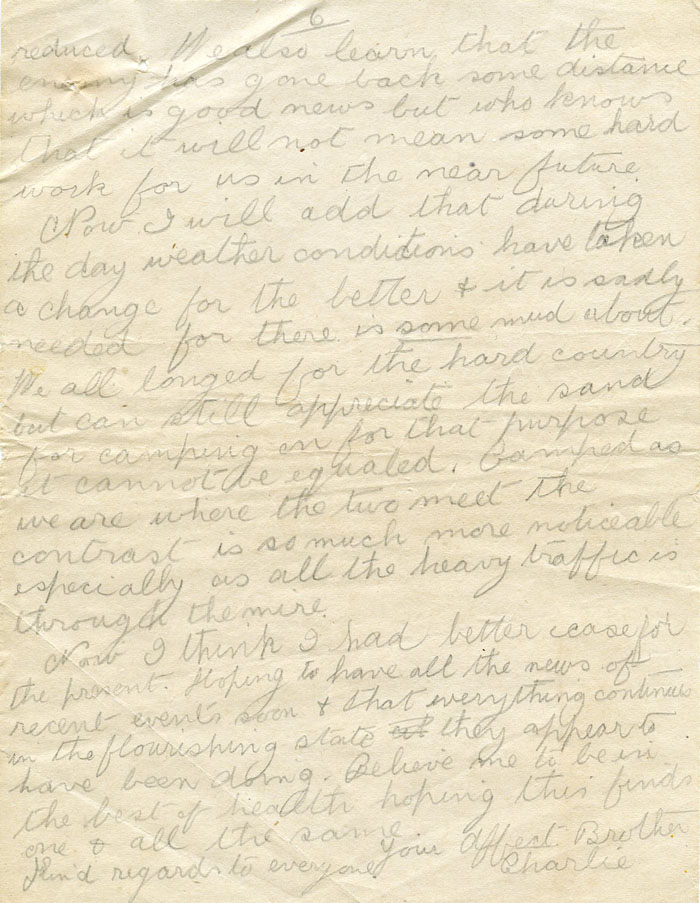 6
reduced. We also learn that the
enemy has gone back some distance
which is good news but who knows
that it will not mean some hard
work for us in the near future
Now I will add that during
the day weather conditions have taken
a change for the better & it is sadly
needed for there is some mud about.
We all longed for the hard country
but can still appreciate the sand
for camping on for that purpose
it cannot be equaled. Camped as
we are where the two meet the
contrast is so much more noticeable
especially as all the heavy traffic is
through the mire.
Now I think I had better cease for
the present. Hoping to have all the news of
recent events soon & that everything continues
in the flourishing state they appear to
have been doing. Believe me to be in
the best of health hoping this finds
one & all the same
Your Affect. Brother
Kind regards to everyone Charlie